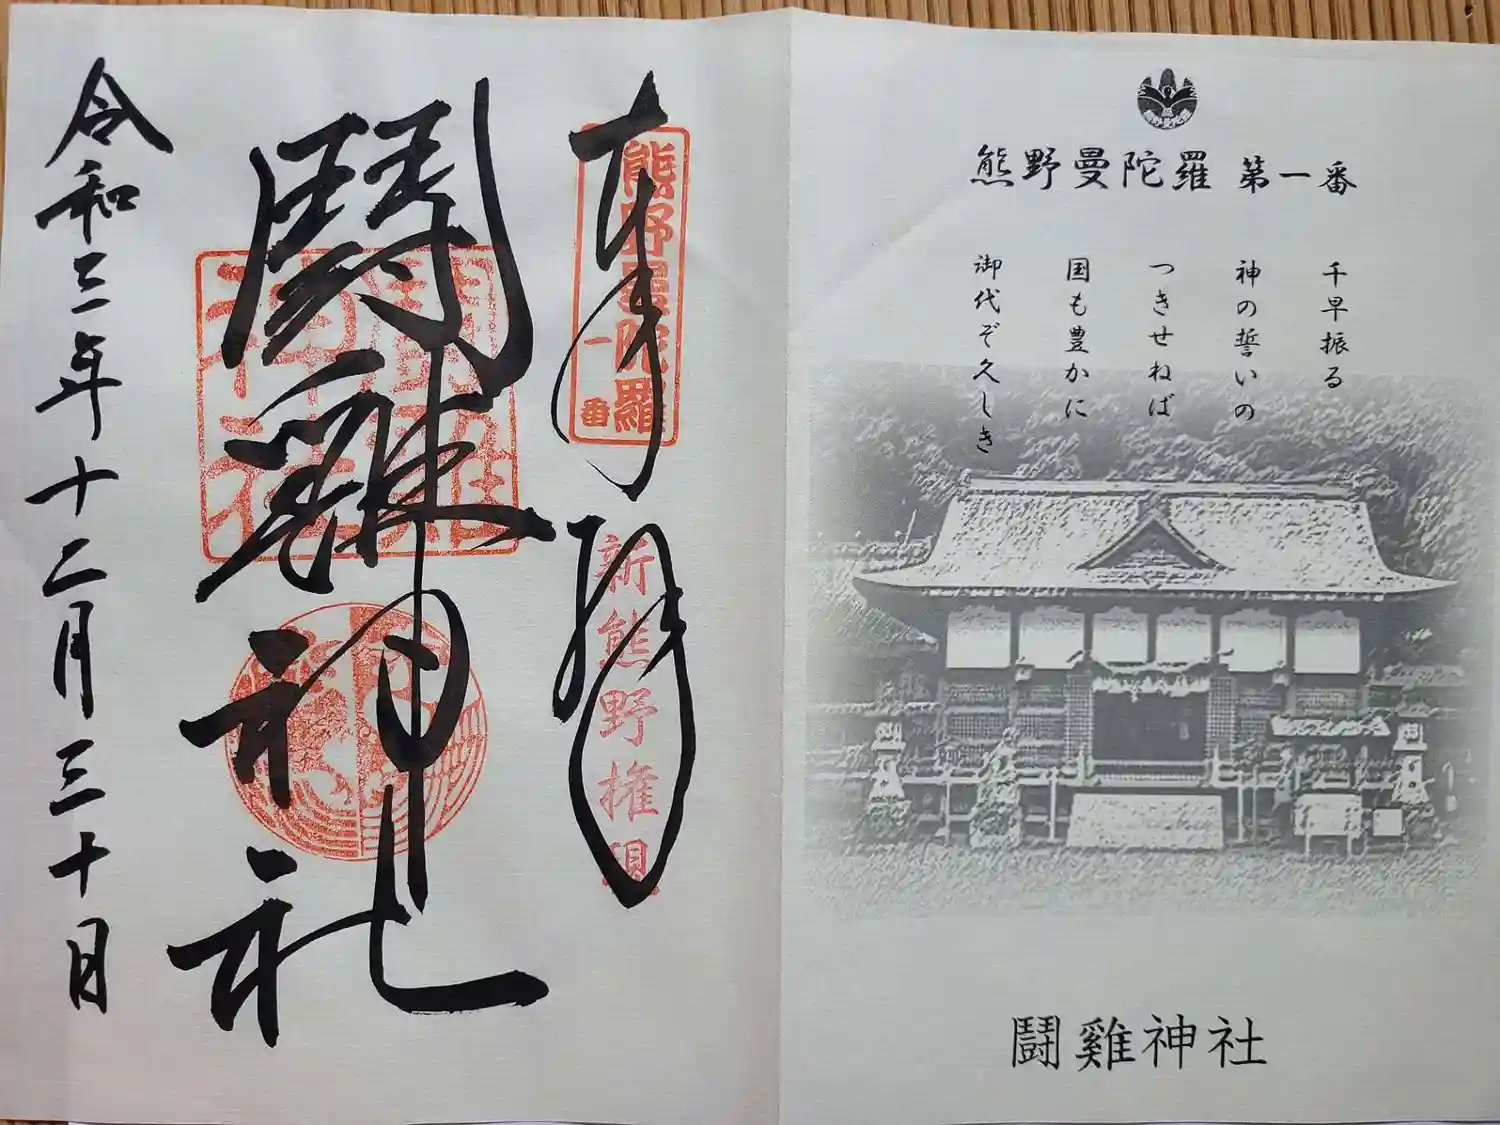 熊野曼陀羅 第一番
千早振る
神の誓いの
つきせねば
国も豊かに
御代ぞ久しき
鬪雞神社
奉拝
熊野曼陀羅
一番
新熊野権現
鬪雞神社
鬪雞神社
令和三年十二月三十日